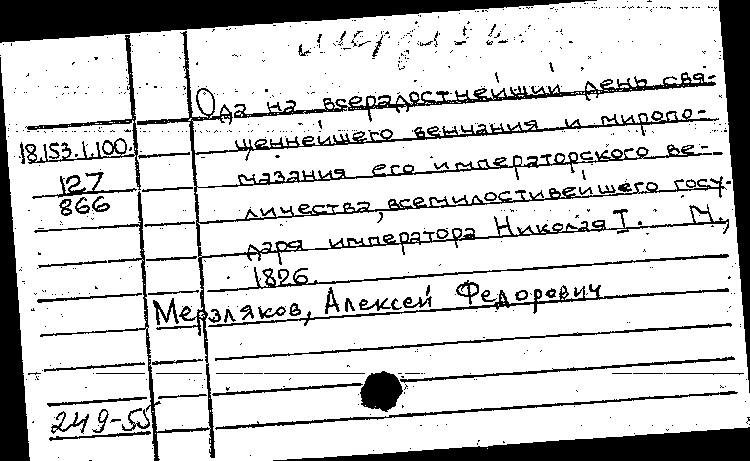 Мерзляков.
Ода на всерадостнейший день свя-
18.153.1.100. щеннейшего венчания и миропо-
127 мазания его императорского ве-
866 личества, всемилостивейшего госу-
даря императора Николая I. М.,
1826.
Мерзляков, Алексей Федорович
249-55